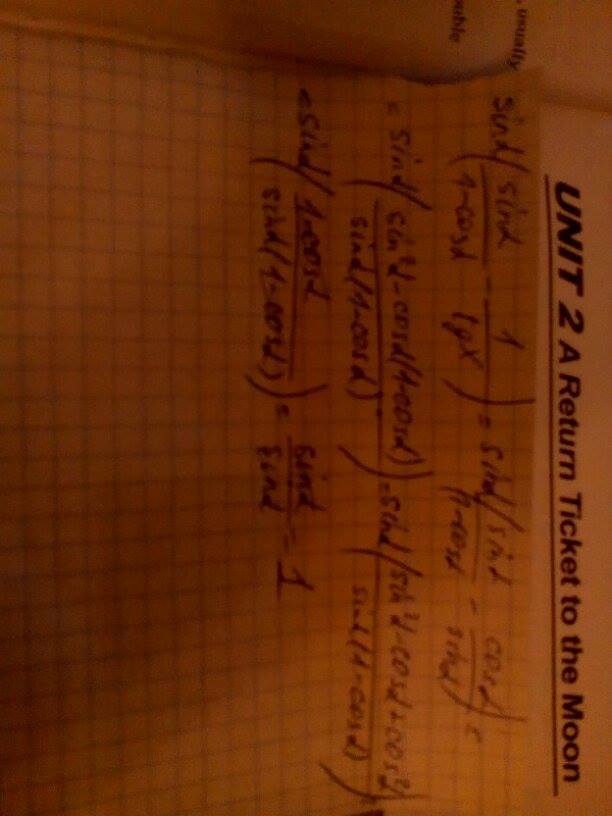 , usually
ouble
UNIT 2 A Return Ticket to the Moon
sinα(sinα/(1-cosα) - 1/tgα) = sinα(sinα/(1-cosα) - cosα/sinα) =
= sinα((sin²α-cosα(1-cosα))/(sinα(1-cosα))) = sinα((sin²α-cosα+cos²α)/(sinα(1-cosα)))
= sinα((1-cosα)/(sinα(1-cosα))) = sinα/sinα = 1